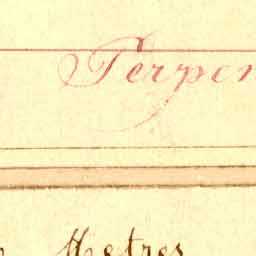 Perpen
Metres